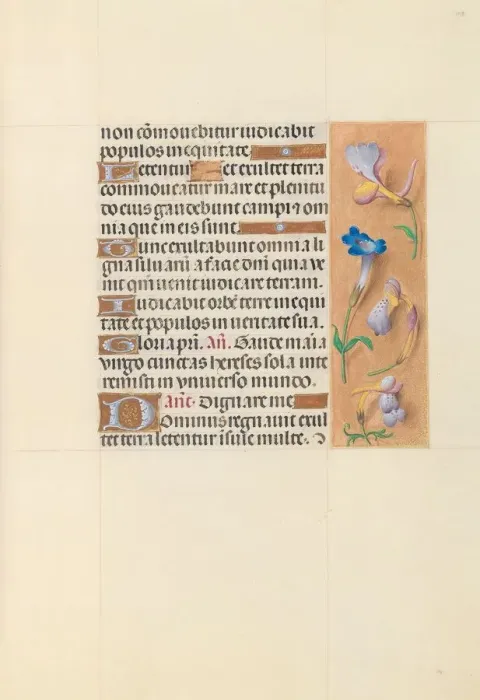 non cōmouebitur iudicabit
populos in equitate.
Letentur et exultet terra
commoueatur mare et plenitu
do eius gaudebunt campi ⁊ om
nia que in eis sunt.
Tunc exultabunt omnia li
gna siluarū a facie dnī quia ve
nit qm̄ uenit iudicare terram.
Iudicabit orbē terre in equi
tate et populos in ueritate sua.
Gloria pri. An̄. Gaude maria
virgo cunctas hereses sola inte
remisti in vniuerso mundo.
añe. Dignare me
Dominus regnauit exul
tet terra letentur isule multe.